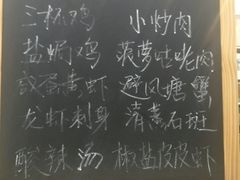 三杯鸡 小炒肉
盐焗鸡 菠萝咕咾肉
咸蛋黄虾 避风塘蟹
龙虾刺身 清蒸石斑
酸辣汤 椒盐皮皮虾